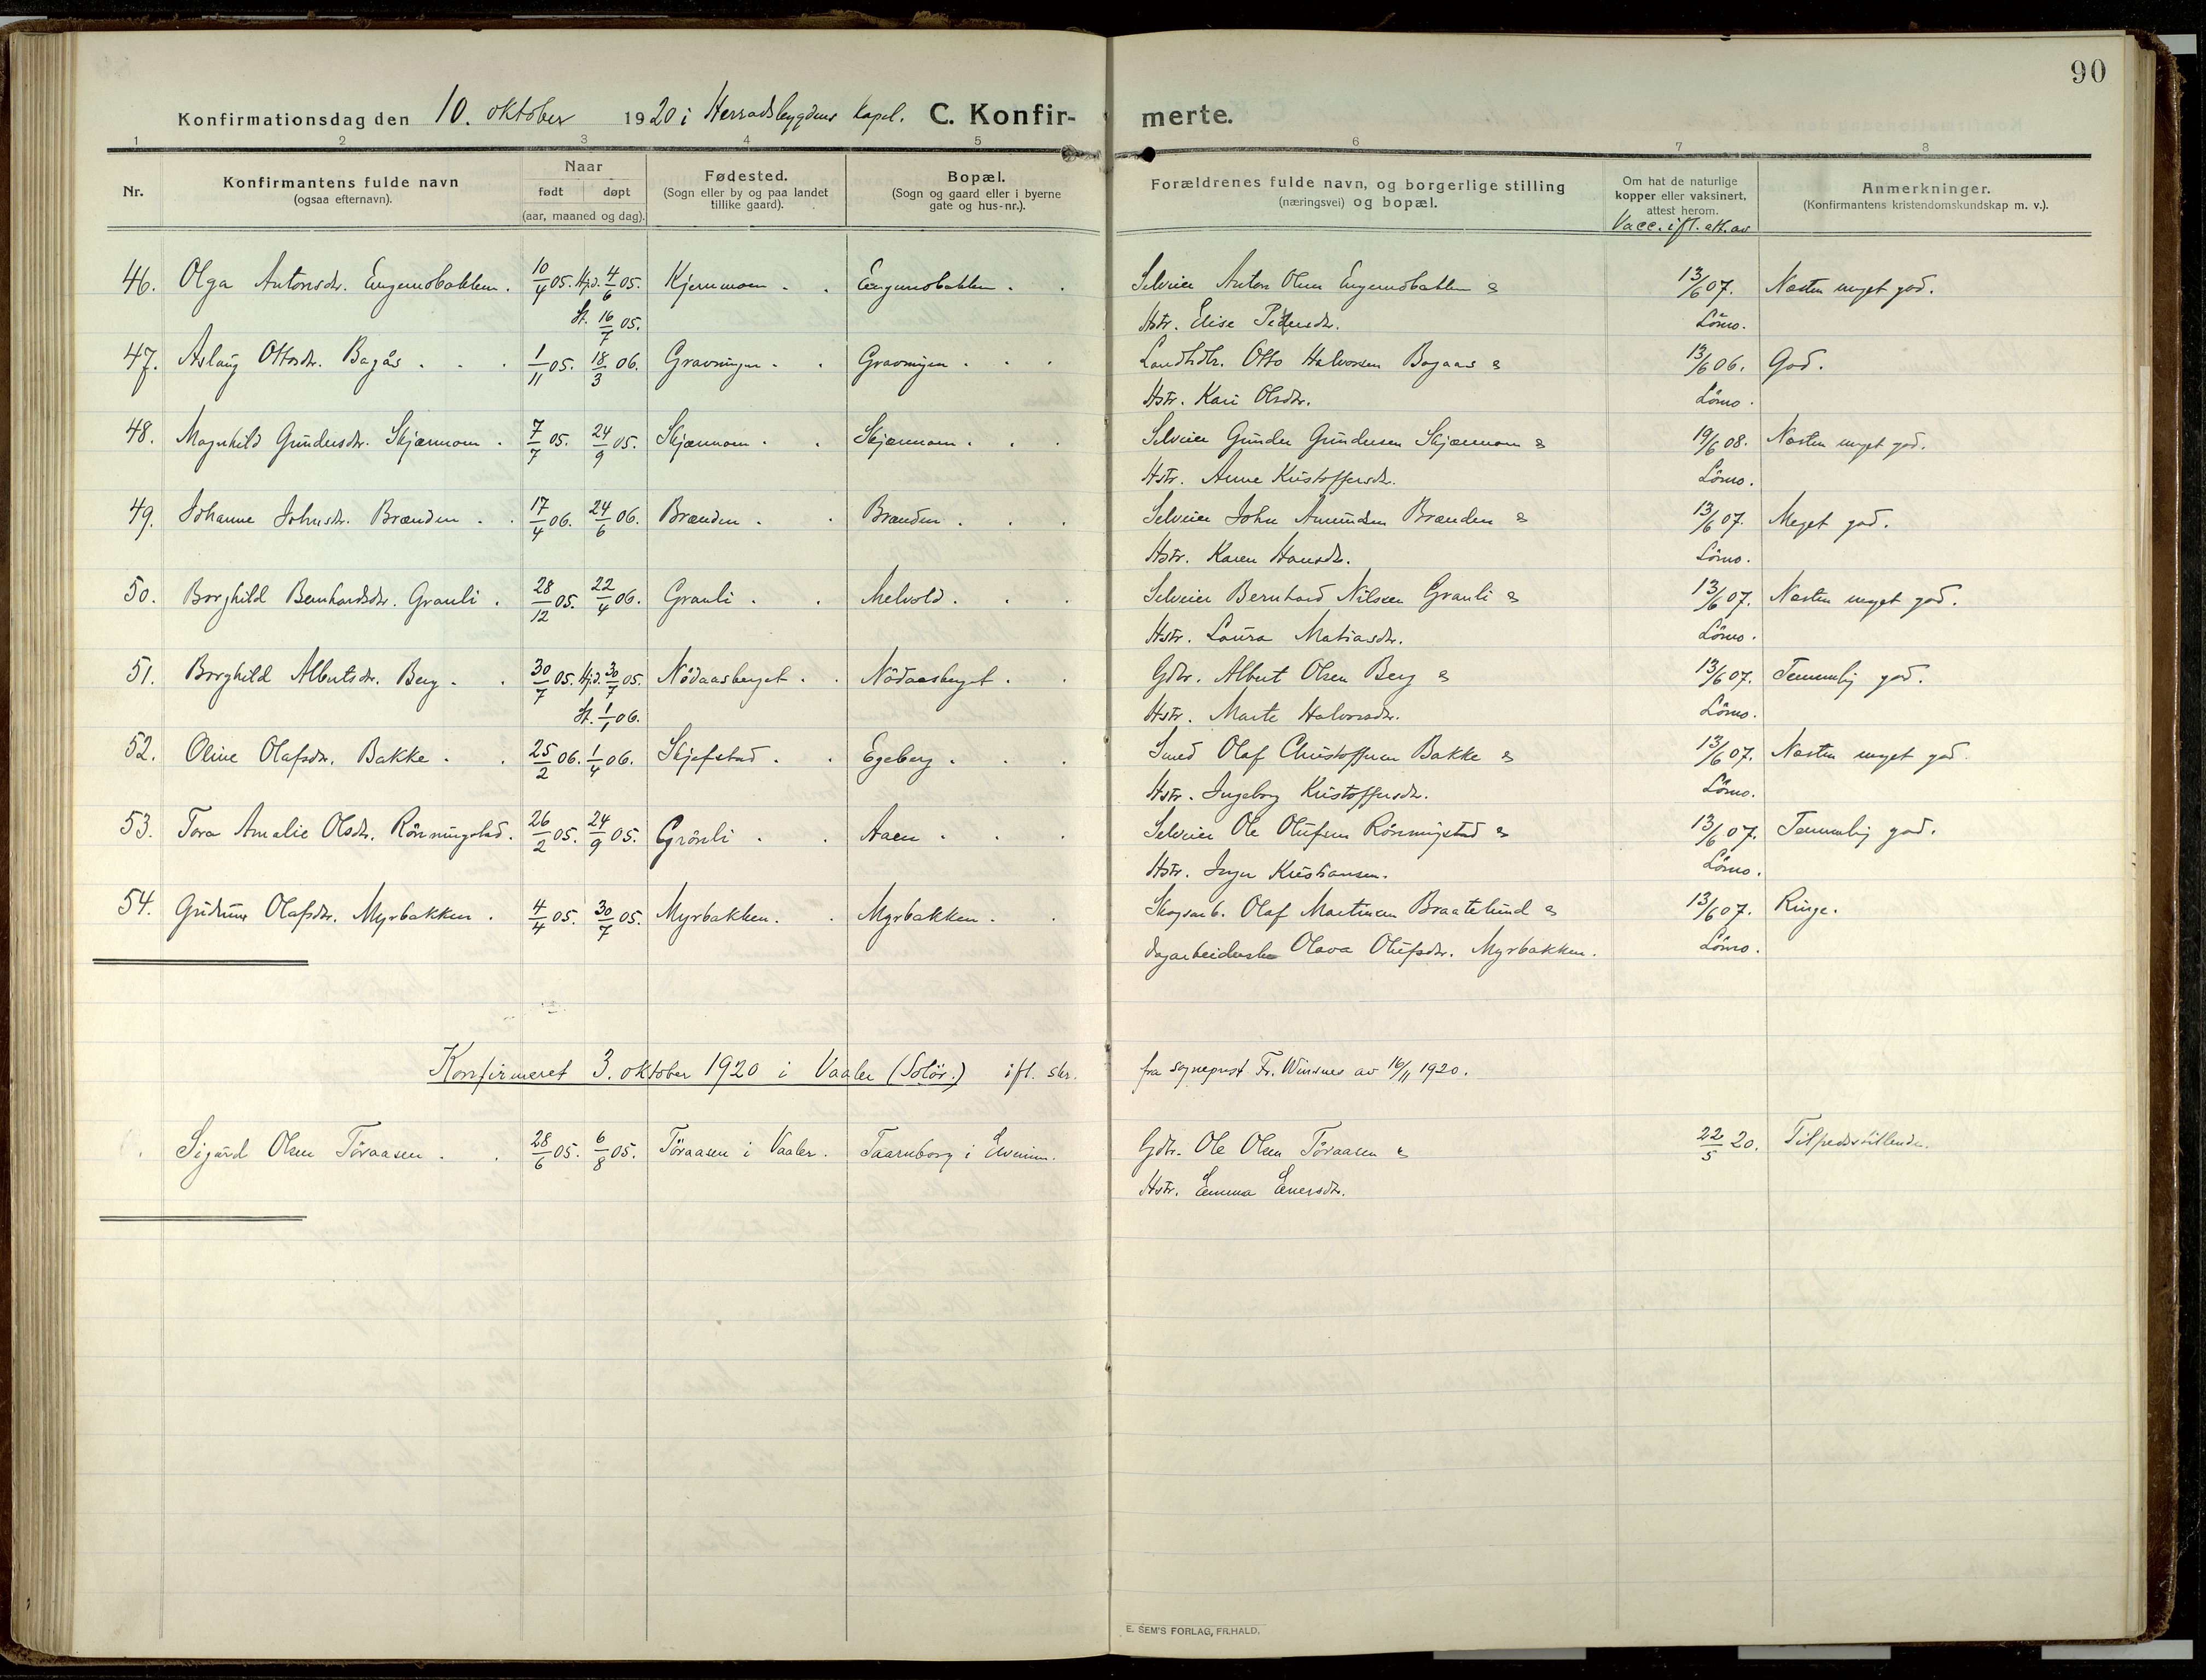 90
Konfirmationsdag den 10. oktober 1920 i Herradsbygdens kapel. C. Konfirmerte.
1 2 3 4 5 6 7 8
Nr.
Konfirmantens fulde navn
(ogsaa efternavn).
Naar
født døpt
(aar, maaned og dag).
Fødested.
(Sogn eller by og paa landet
tillike gaard).
Bopæl.
(Sogn og gaard eller i byerne
gate og hus-nr.).
Forældrenes fulde navn, og borgerlige stilling
(næringsvei) og bopæl.
Om hat de naturlige
kopper eller vaksinert,
attest herom.
Vacc. ifl. att. av
Anmerkninger.
(Konfirmantens kristendomskundskap m. v.).
46. Olga Antonsdr. 10/4 05. Hjd. 4/6 05. Selveier Anton Olsen 13/6 07. Næsten meget god.
St. 16/7 05. Hstr. Elise Pedersdr. Lömo.
47. Aslaug Ottosdr. Bagås 1/11 05. 18/3 06. Otto Halvorsen Bagaas & 13/6 06. God.
Hstr. Kari Olsdr. Lömo.
48. Magnhild Gundersdr. Skjærmoen 7/7 05. 24/9 05. Skjærmoen Skjærmoen Selveier Gunder Gundersen Skjærmoen & 19/6 08. Næsten meget god.
Hstr. Anne Kristoffersdr. Lömo.
49. Johanne Johnsdr. Brænden 17/4 06. 24/6 06. Brænden Brænden Selveier John Amundsen Brænden & 13/6 07. Meget god.
Hstr. Karen Hansdr. Lömo.
50. Borghild Bernhardsdr. Granli 28/12 05. 22/4 06. Granli Melvold Selveier Bernhard Nilsen Granli & 13/6 07. Næsten meget god.
Hstr. Laura Matiasdr. Lömo.
51. Borghild Albertsdr. Berg 30/7 05. Hjd. 30/7 05. Nödaasberget Nödaasberget Gdbr. Albert Olsen Berg & 13/6 07. Temmelig god.
St. 1/1 06. Hstr. Marte Halvorsdr. Lömo.
52. Oline Olafsdr. Bakke 25/2 06. 1/4 06. Skjefstad Egeberg Smed Olaf Christoffersen Bakke & 13/6 07. Næsten meget god.
Hstr. Ingeborg Kristoffersdr. Lömo.
53. Tora Amalie Olsdr. Rönningstad. 26/2 05. 24/9 05. Grönli Aaen Selveier Ole Olufsen Rönningstad & 13/6 07. Temmelig god.
Hstr. Inger Kristiansen. Lömo.
54. Gudrun Olafsdr. Myrbakken 4/4 05. 30/7 05. Myrbakken. Myrbakken. Skogsarb. Olaf Martinsen Braatelund & 13/6 07. Ringe.
Dagarbeiderske Olava Olufsdr. Myrbakken. Lömo.
Konfirmeret 3. oktober 1920 i Vaaler (Solör.) ifl. skr. fra sogneprest Fr. Winsnes av 16/11 1920.
Sigurd Olsen Töraasen 28/6 05. 6/8 05. Töraasen i Vaaler. Taarnborg i Elverum. Gdbr. Ole Olsen Töraasen & 22/5 20. Tilfredsstillende.
Hstr. Emma Enersdr.
E. SEM'S FORLAG, FR.HALD.